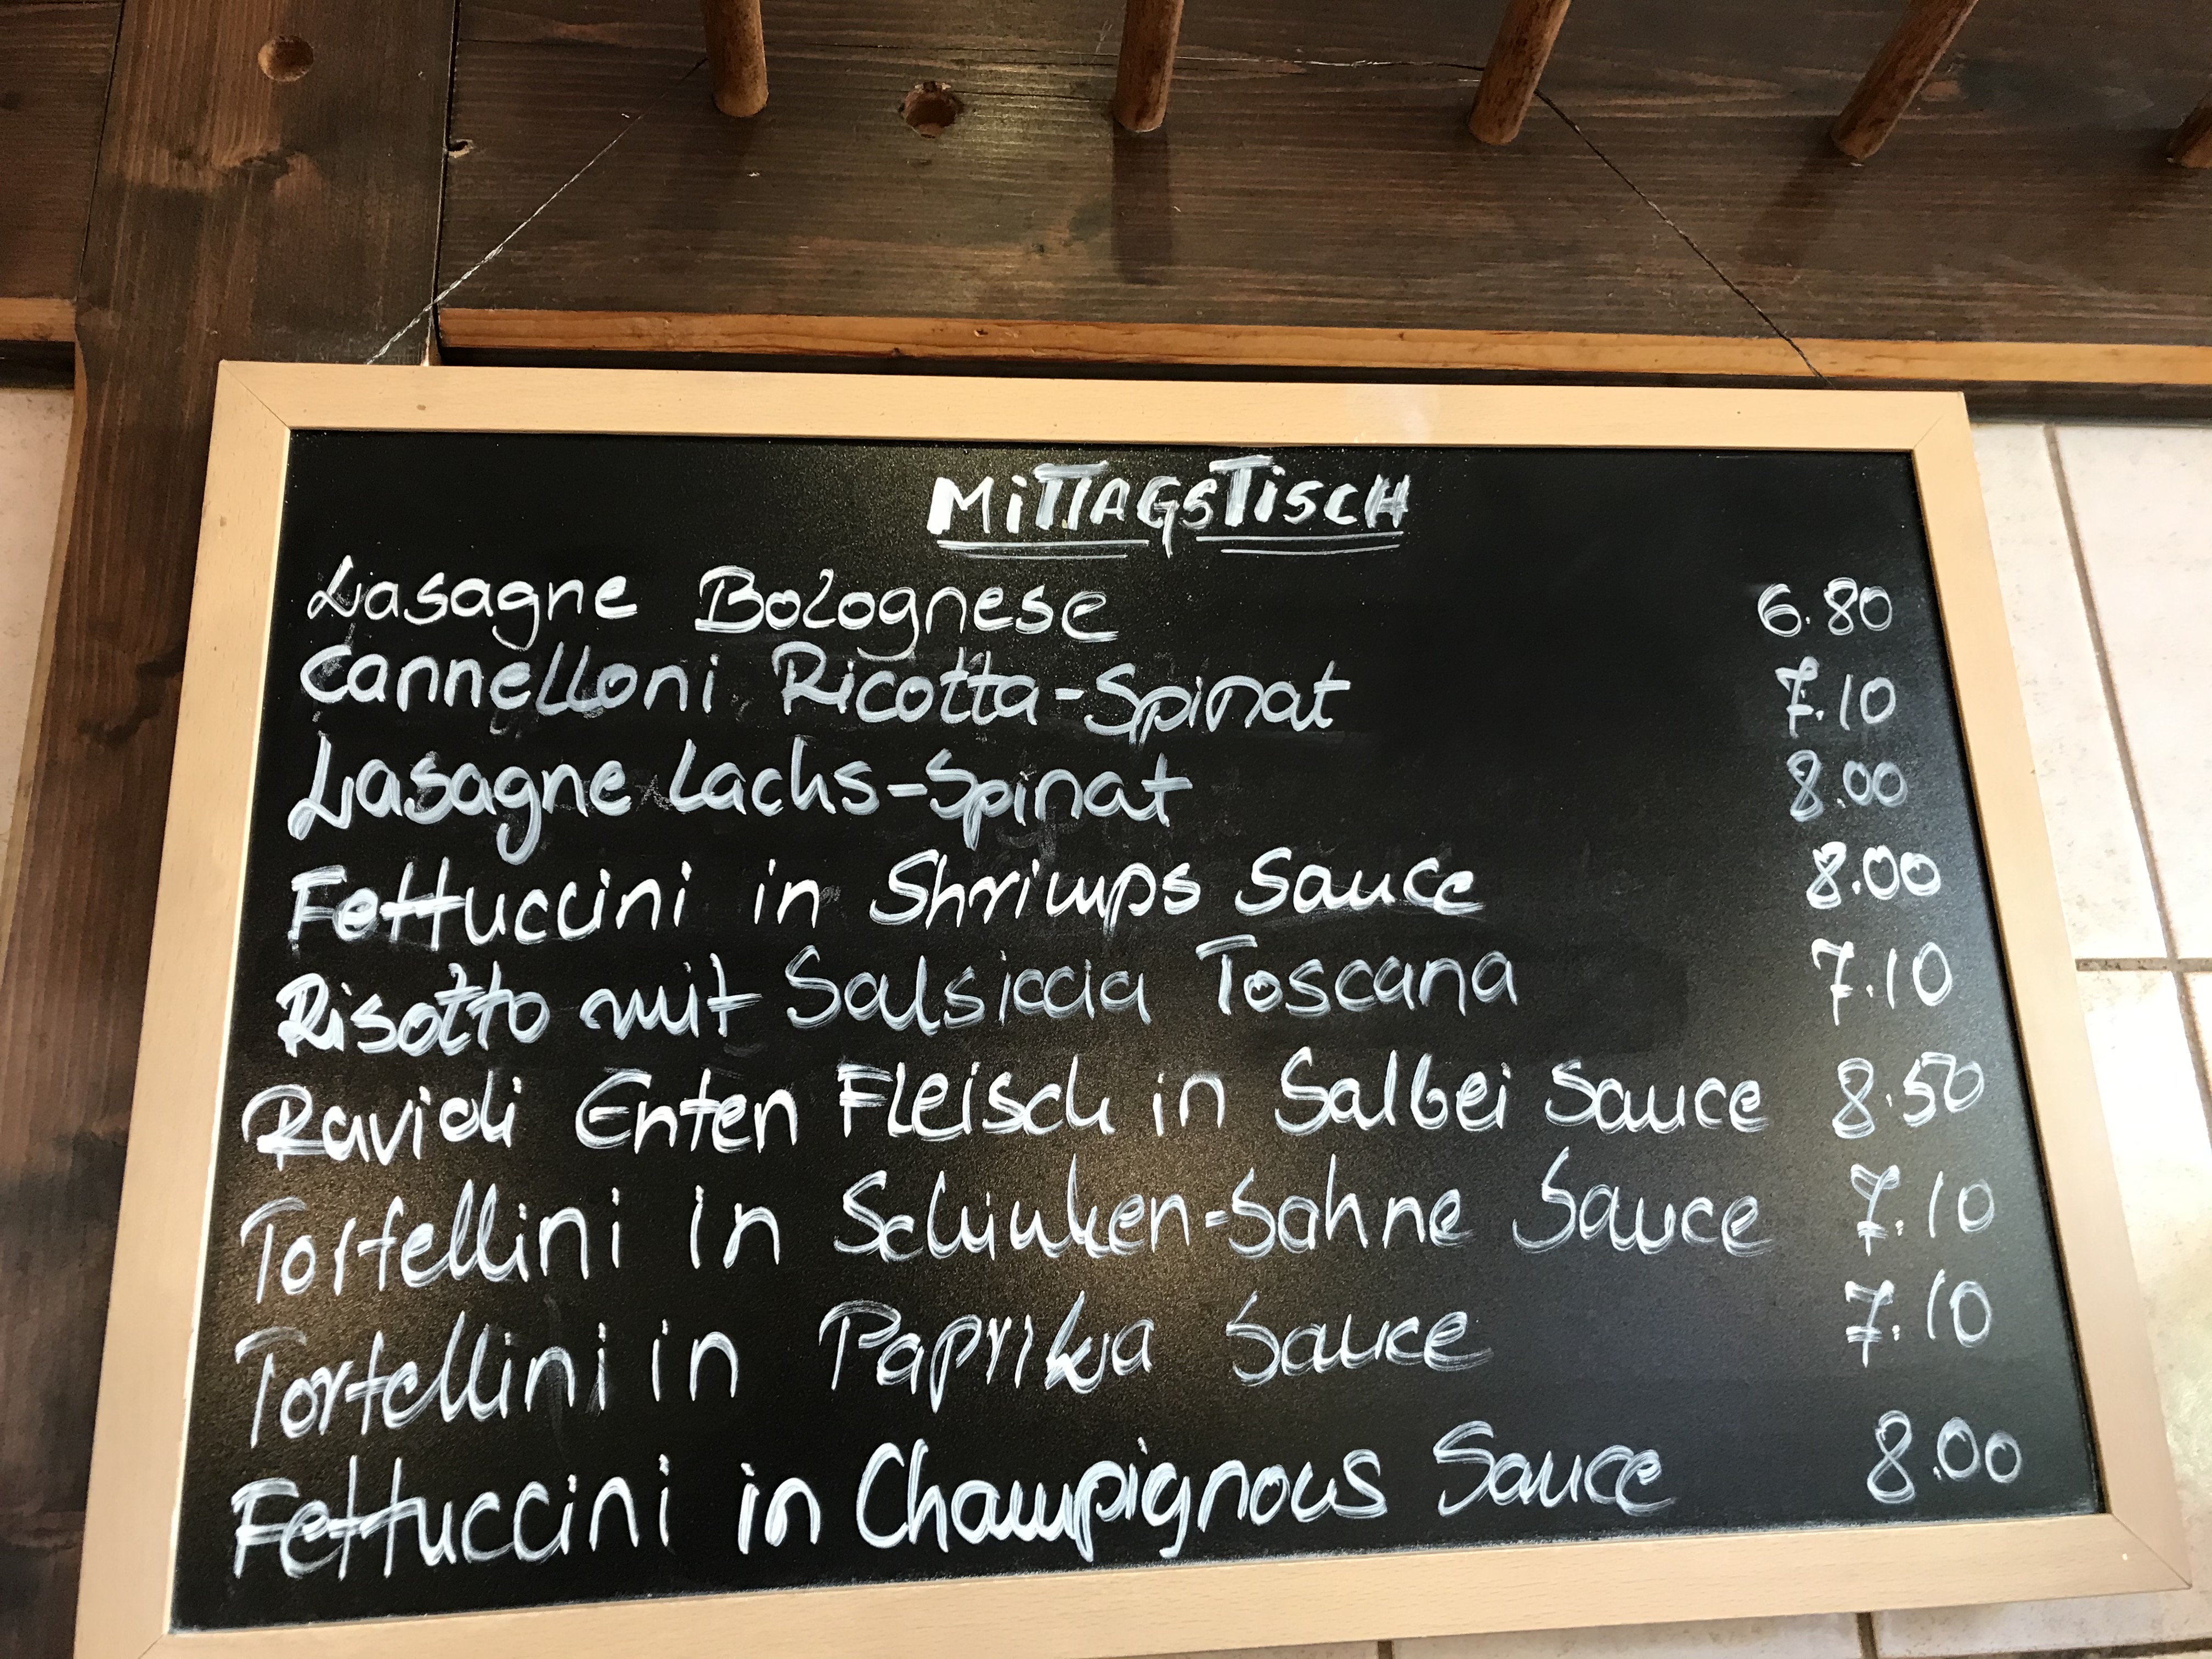 MiTTAGSTiSCH
Lasagne Bolognese 6.80
Cannelloni Ricotta-Spinat 7.10
Lasagne Lachs-Spinat 8.00
Fettuccini in Shrimps Sauce 8.00
Risotto mit Salsiccia Toscana 7.10
Ravioli Enten Fleisch in Salbei Sauce 8.50
Tortellini in Schinken-Sahne Sauce 7.10
Tortellini in Paprika Sauce 7.10
Fettuccini in Champignons Sauce 8.00